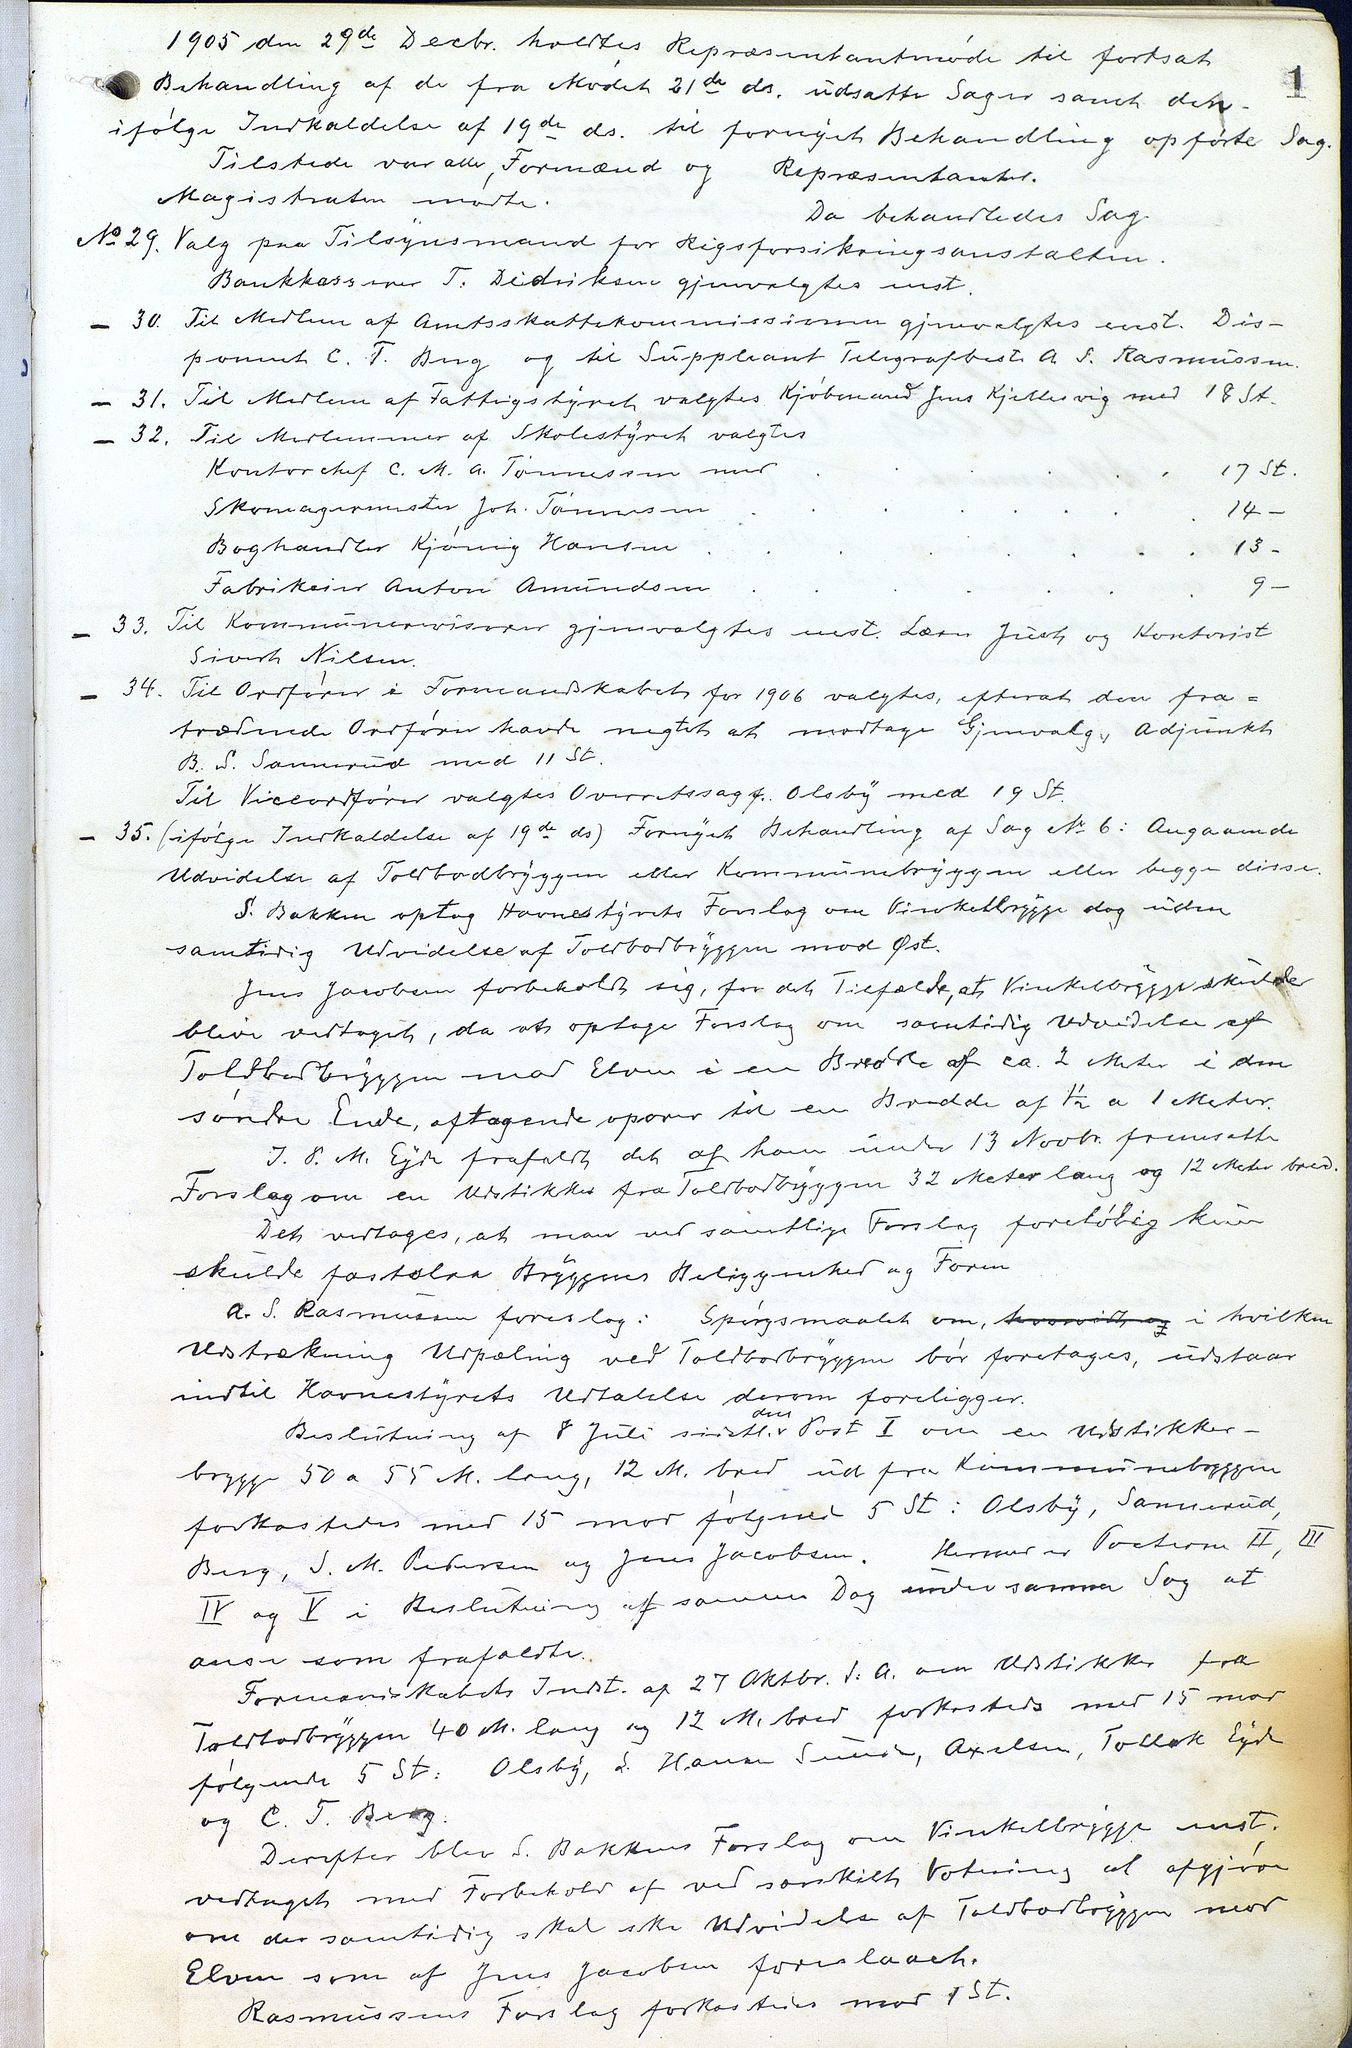 1
1905 den 29de Decbr. holdtes Repræsentantmöde til fortsat
Behandling af de fra Mödet 21de ds. udsatte Sager samt den
ifölge Indkaldelse af 19de ds. til fornyet Behandling opförte Sag.
Tilstede var alle Formænd og Repræsentanter.
Magistraten mödte.
Da behandledes Sag
No 29. Valg paa Tilsynsmand for Rigsforsikringsanstalten.
Bankkasserer T. Didriksen gjenvalgtes enst.
— 30. Til Medlem af Amtsskattekommissionen gjenvalgtes enst. Dis-
ponent C. T. Berg og til Suppleant Telegrafbest. A. S. Rasmussen.
— 31. Til Medlem af Fattigstyret valgtes Kjöbmand Jens Kjellesvig med 18 St.
— 32. Til Medlemmer af Skolestyret valgtes
Kontorchef C. M. A. Tönnessen med . . . . . 17 St.
Skomagermester Joh. Tönnesen . . . . . . 14 —
Boghandler Kjönig Hansen . . . . . . 13 —
Fabrikeier Anton Amundsen . . . . . . 9 —
— 33. Til Kommunerevisorer gjenvalgtes enst. Lærer Juch og Kontorist
Sivert Nilsen.
— 34. Til Ordförer i Formandskabet for 1906 valgtes, efterat den fra=
trædende Ordförer havde negtet at modtage Gjenvalg, Adjunkt
B. S. Sannerud med 11 St.
Til Viceordförer valgtes Overretssagf. Olsby med 19 St.
— 35. (ifölge Indkaldelse af 19de ds) Fornyet Behandling af Sag No 6: Angaaende
Udvidelse af Toldbodbryggen eller Kommunebryggen eller begge disse.
S. Bakken optog Havnestyrets Forslag om Vinkelbrygge dog uden
samtidig Udvidelse af Toldbodbryggen mod Øst.
Jens Jacobsen forbeholdt sig, for det Tilfælde, at Vinkelbrygge skulde
blive vedtaget, da at optage Forslag om samtidig Udvidelse af
Toldbodbryggen mod Elven i en Bredde af ca. 2 Meter i den
söndre Ende, aftagende opover til en Bredde af 1/2 a 1 Meter.
J. P. M. Eyde frafaldt det af ham under 13 Novbr. fremsatte
Forslag om en Udstikker fra Toldbodbryggen 32 Meter lang og 12 Meter bred.
Det vedtages, at man ved samtlige Forslag forelöbig kun
skulde fastslaa Bryggens Beliggenhed og Form
A. S. Rasmussen foreslog: Spörgsmaalet om, hvorvidt og i hvilken
Udstrækning Udpæling ved Toldbodbryggen bör foretages, udstaar
indtil Havnestyrets Udtalelse derom foreligger.
Beslutning af 8 Juli sidstl. dens Post I om en Udstikker-
brygge 50 a 55 M. lang, 12 M. bred ud fra Kommunebryggen
forkastedes med 15 mod fölgende 5 St: Olsby, Sannerud,
Berg, S. M. Pedersen og Jens Jacobsen. Hermed er Posterne II, III
IV og V i Beslutning af samme Dag under samme Sag at
anse som frafaldte.
Formandskabets Indst. af 27 Oktbr. d. A. om Udstikker fra
Toldbodbryggen 40 M. lang og 12 M. bred forkastedes med 15 mod
fölgende 5 St: Olsby, S. Hansen Sunde, Axelsen, Tellek Eyde
og C. T. Berg.
Derefter blev S. Bakkens Forslag om Vinkelbrygge enst.
vedtaget med Forbehold af ved særskilt Votering at afgjöre
om der samtidig skal ske Udvidelse af Toldbodbryggen mod
Elven som af Jens Jacobsen foreslaaet.
Rasmussens Forslag forkastedes mod 1 St.